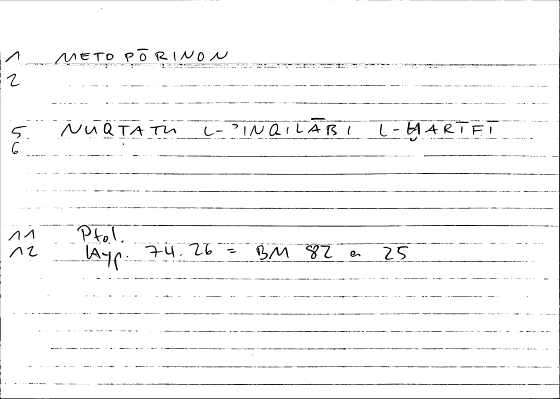 1 METOPŌRINON
2
5. NUQTATU L-ʾINQILĀBI L-ḪARĪFĪ
6
11 Ptol.
12 Hyp. 74.26 = BM 82 a 25